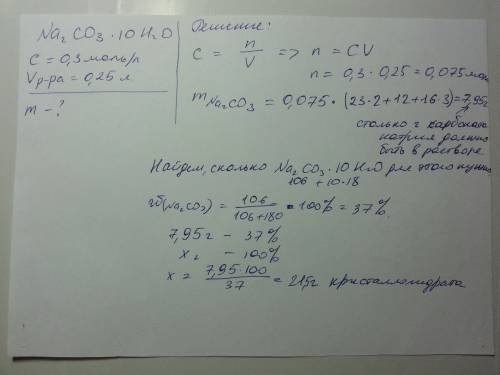 Na₂CO₃ · 10 H₂O
C = 0,3 моль/л
Vр-ра = 0,25 л
m - ?
Решение:
C = n/V => n = CV
n = 0,3 · 0,25 = 0,075 моль
mNa₂CO₃ = 0,075 · (23·2+12+16·3) = 7,95г
столько г карбоната
натрия должно
быть в растворе
Найдем, сколько Na₂CO₃·10 H₂O для этого нужно
106 + 10·18
w(Na₂CO₃) = 106/(106+180) · 100% = 37%
7,95г - 37%
x г - 100%
x = 7,95·100/37 = 21,5г кристаллогидрата